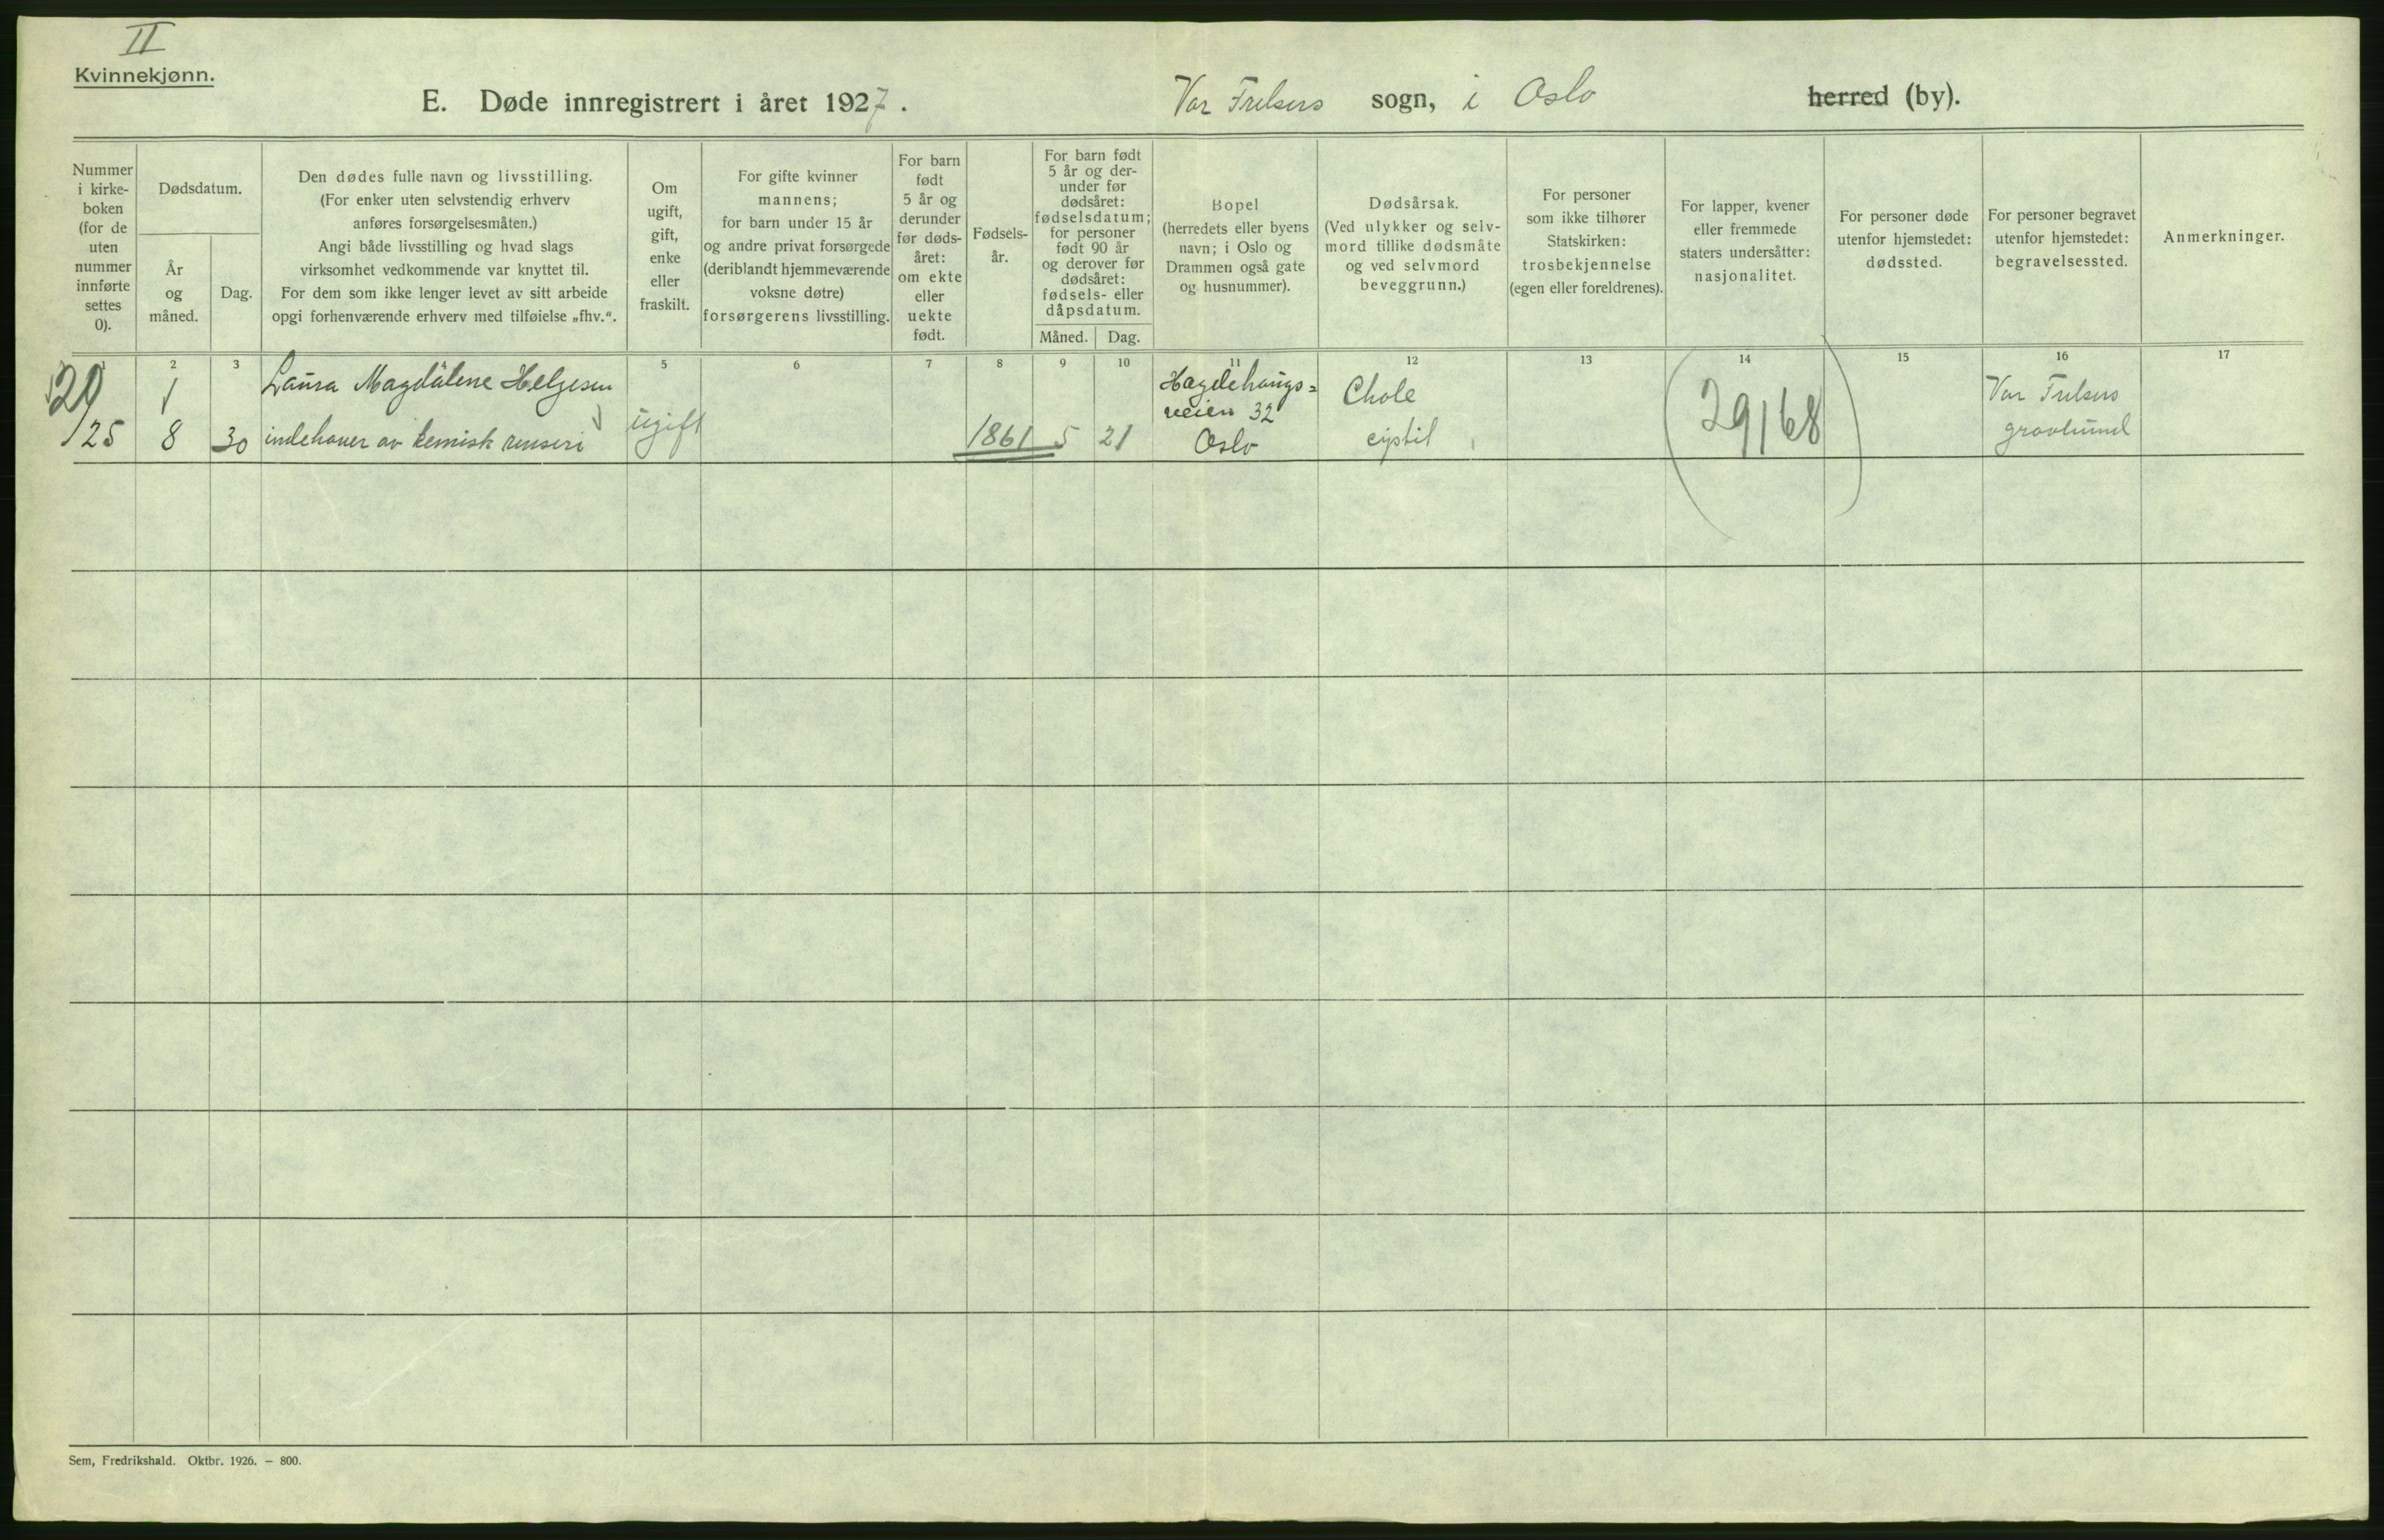 II
Kvinnekjønn.
E. Døde innregistrert i året 1927.
Vor Frelsers sogn, i Oslo herred (by).
Nummer
i kirke-
boken
(for de
uten
nummer
innførte
settes
0).
Dødsdatum.
År
og
måned.
Dag.
Den dødes fulle navn og livsstilling.
(For enker uten selvstendig erhverv
anføres forsørgelsesmåten.)
Angi både livsstilling og hvad slags
virksomhet vedkommende var knyttet til.
For dem som ikke lenger levet av sitt arbeide
opgi forhenværende erhverv med tilføielse „fhv.“.
Om
ugift,
gift,
enke
eller
fraskilt.
For gifte kvinner
mannens;
for barn under 15 år
og andre privat forsørgede
(deriblandt hjemmeværende
voksne døtre)
forsørgerens livsstilling.
For barn
født
5 år og
derunder
før døds-
året:
om ekte
eller
uekte
født.
Fødsels-
år.
For barn født
5 år og der-
under før
dødsåret:
fødselsdatum;
for personer
født 90 år
og derover før
dødsåret:
fødsels- eller
dåpsdatum.
Måned. Dag.
Bopel
(herredets eller byens
navn; i Oslo og
Drammen også gate
og husnummer).
Dødsårsak.
(Ved ulykker og selv-
mord tillike dødsmåte
og ved selvmord
beveggrunn.)
For personer
som ikke tilhører
Statskirken:
trosbekjennelse
(egen eller foreldrenes).
For lapper, kvener
eller fremmede
staters undersåtter:
nasjonalitet.
For personer døde
utenfor hjemstedet:
dødssted.
For personer begravet
utenfor hjemstedet:
begravelsessted.
Anmerkninger.
2 3 5 6 7 8 9 10 11 12 13 14 15 16 17
20
125
8
30
Laura Magdalene Helgesen
indehaver av kemisk renseri
ugift
1861
5
21
Hagdehaugs=
veien 32
Oslo
Chole
cystit
(29168)
Vor Frelsers
gravlund
Sem, Fredrikshald. Oktbr. 1926. – 800.